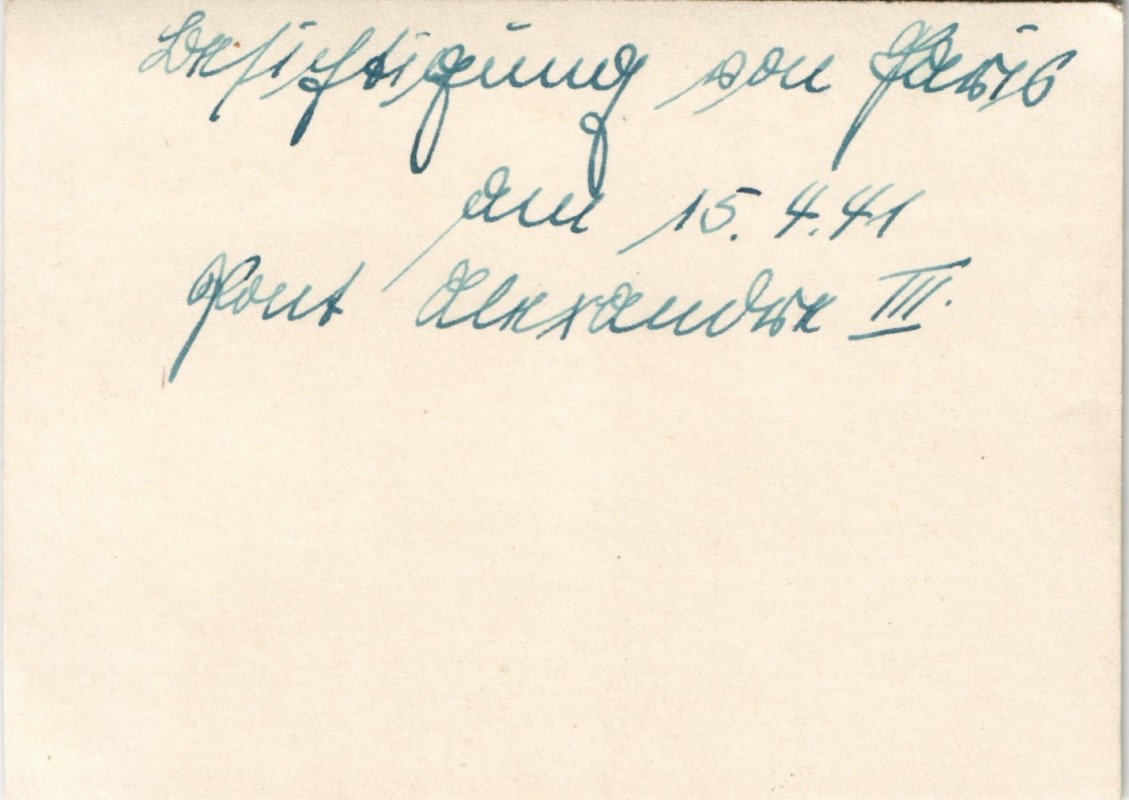 Besichtigung von Paris
am 15. 4. 41
Pont Alexandre III.